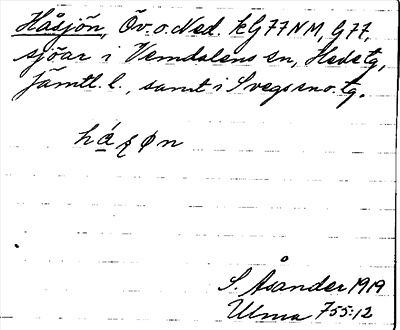 Håsjön, Öv. o. Ned. kG77NM, G77,
sjöar i Vemdalens sn, Hede tg,
Jämtl. l., samt i Svegs sn o. tg.
håʂøn
S. Åsander 1919
Ulma 755:12